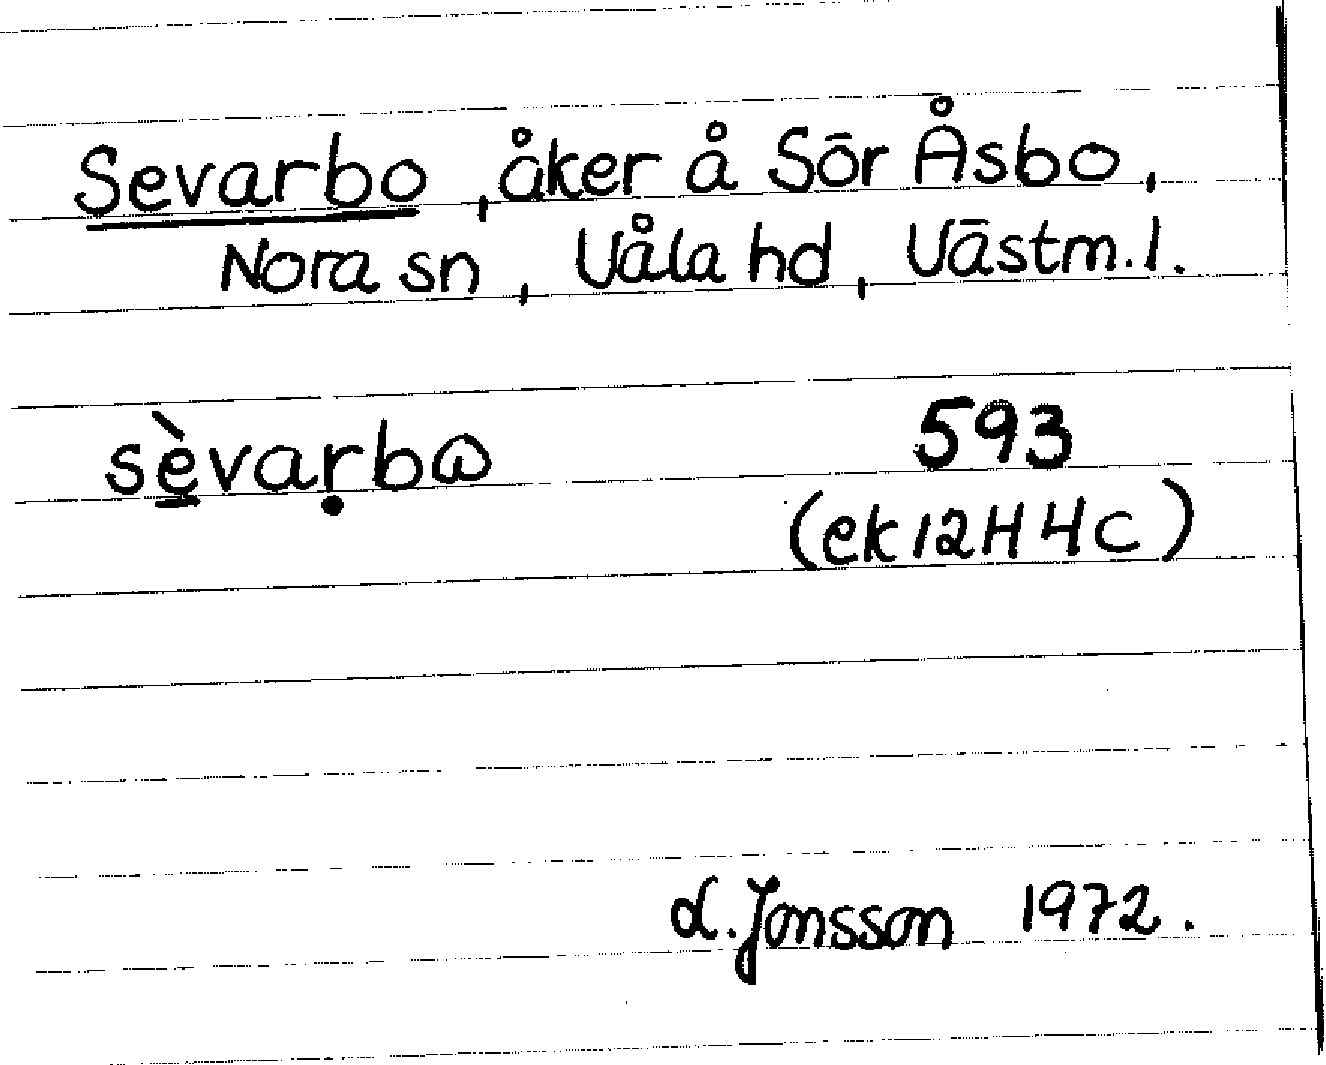 Sevarbo, åker å Sör Åsbo,
Nora sn, Våla hd, Västm.l.
sè̱varḅω 593
(ek 12H 4c)
L. Jonsson 1972.